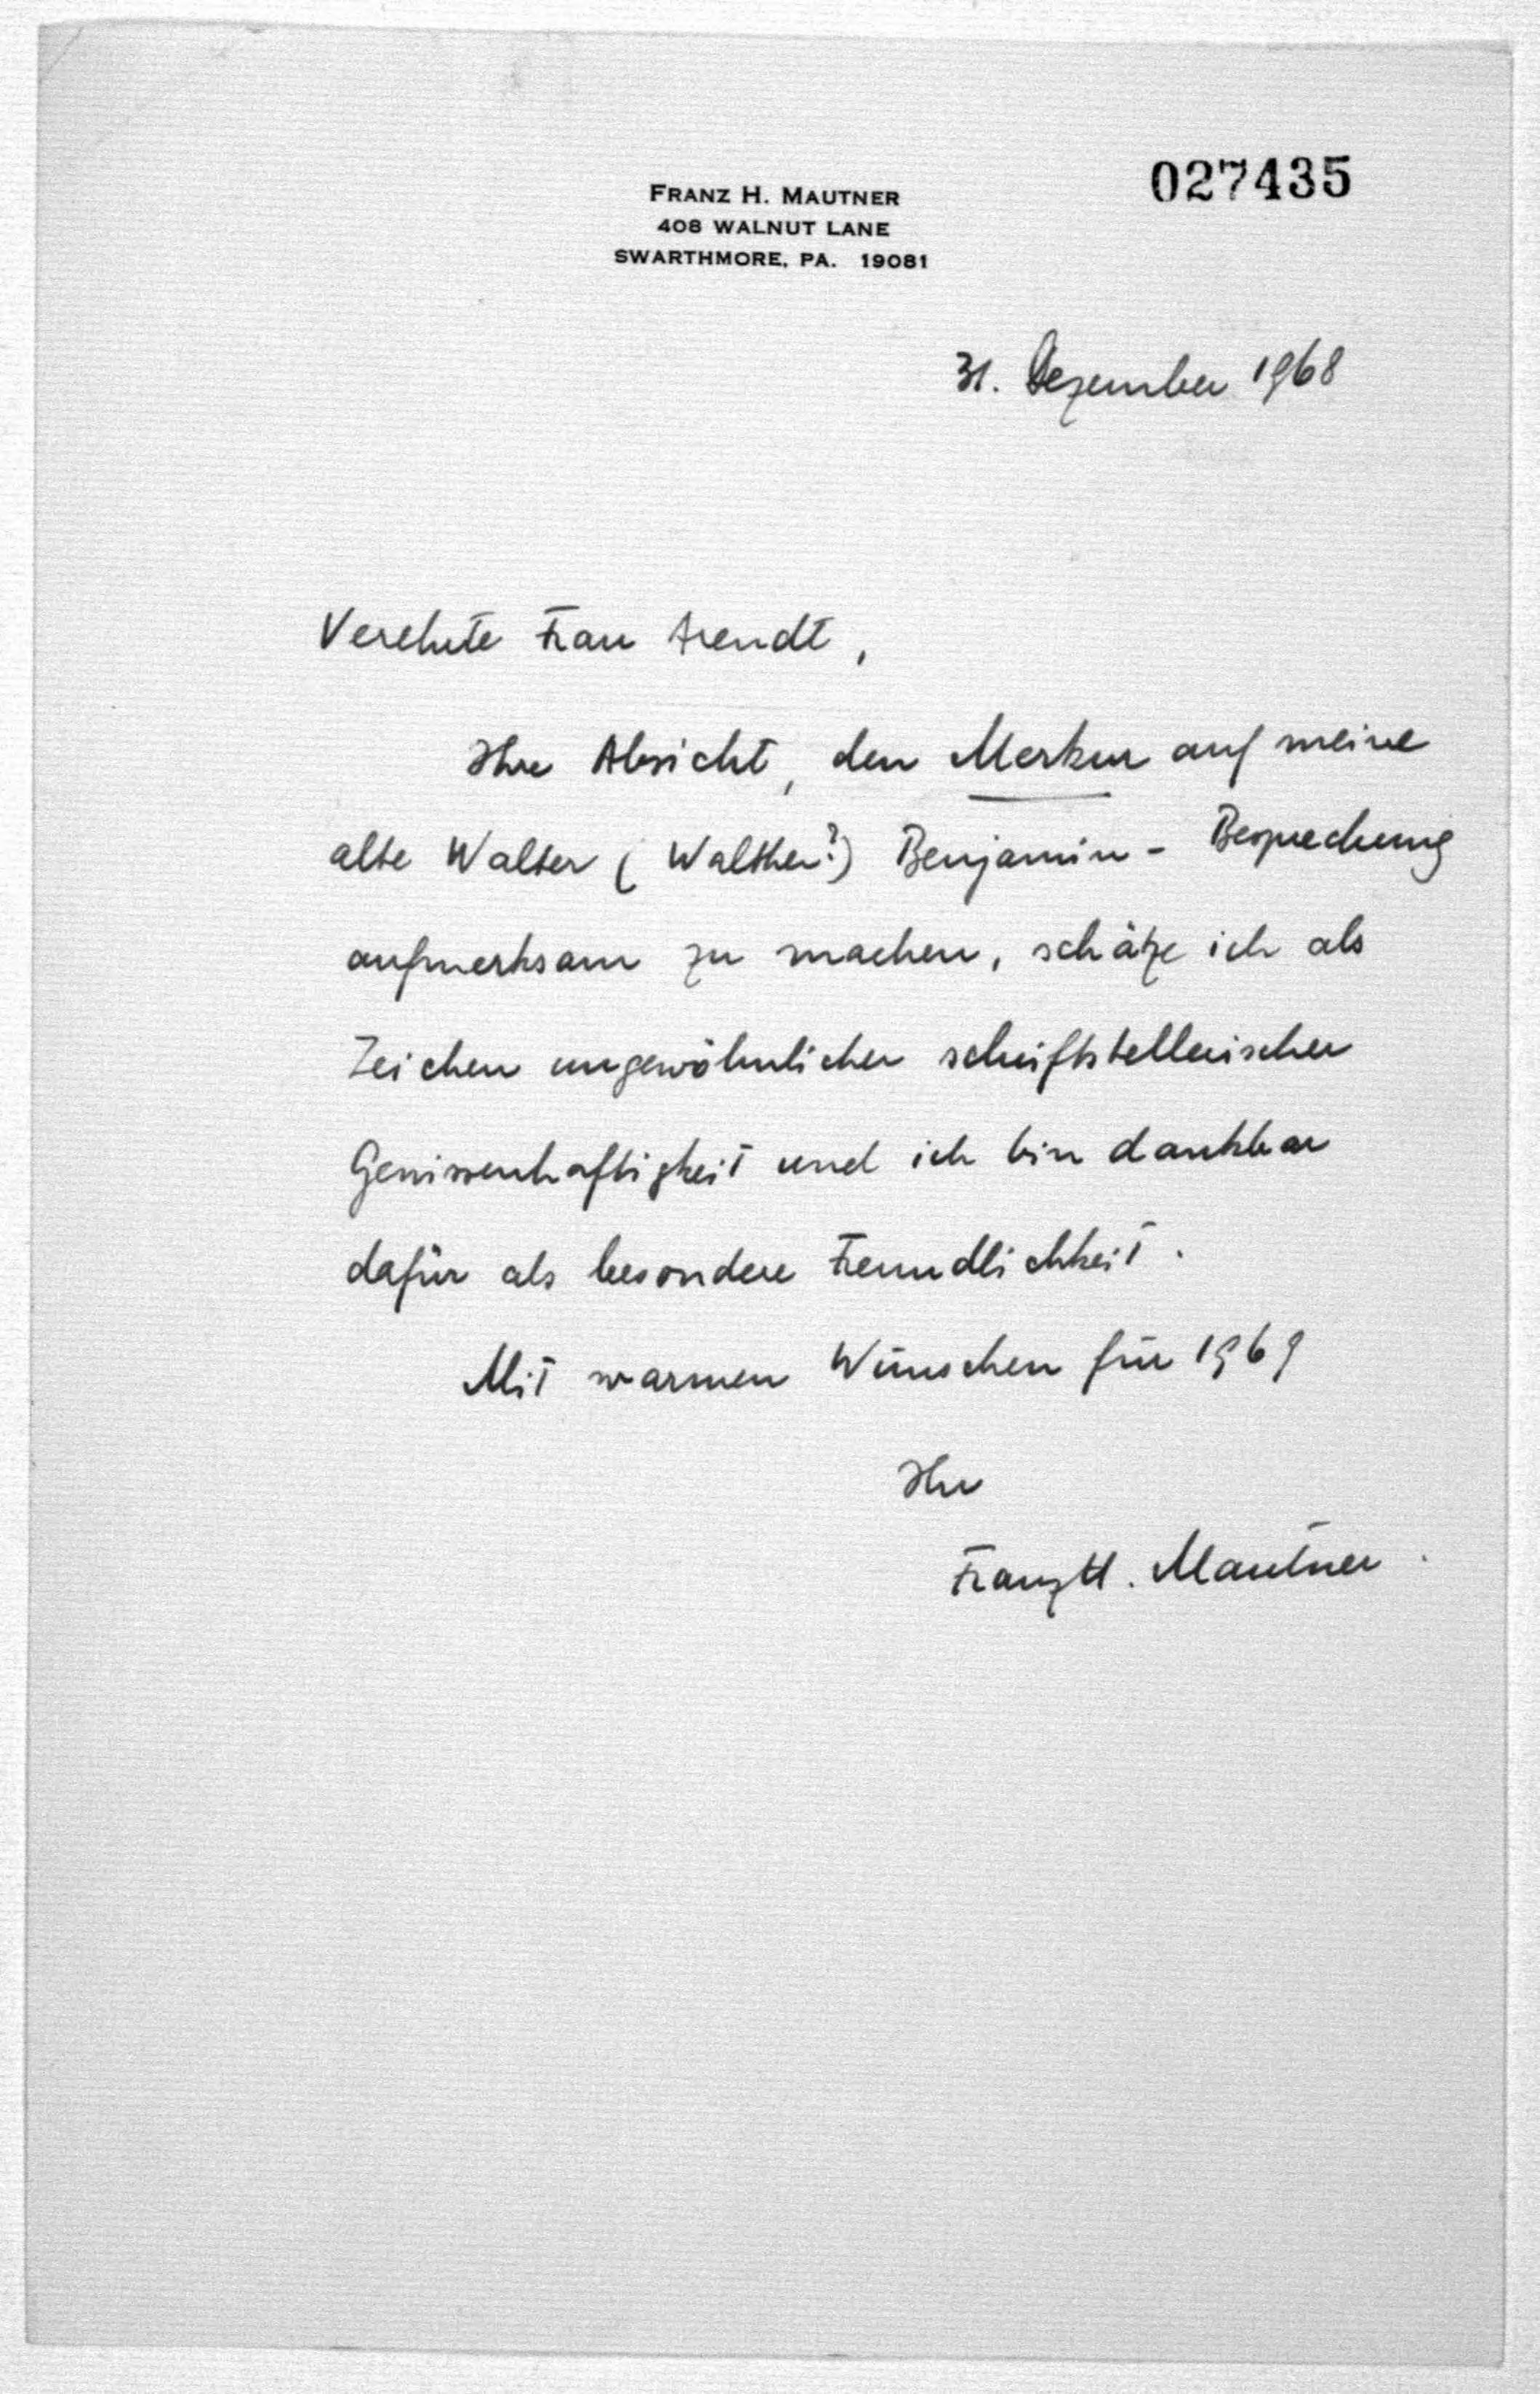 027435
FRANZ H. MAUTNER
408 WALNUT LANE
SWARTHMORE, PA. 19081
31. Dezember 1968
Verehrte Frau Arendt,
Ihre Absicht, den Merkur auf meine
alte Walter (Walther?) Benjamin - Besprechung
aufmerksam zu machen, schätze ich als
Zeichen ungewöhnlicher schriftstellerischer
Gewissenhaftigkeit und ich bin dankbar
dafür als besondere Freundlichkeit.
Mit warmen Wünschen für 1969
Ihr
Franz H. Mautner